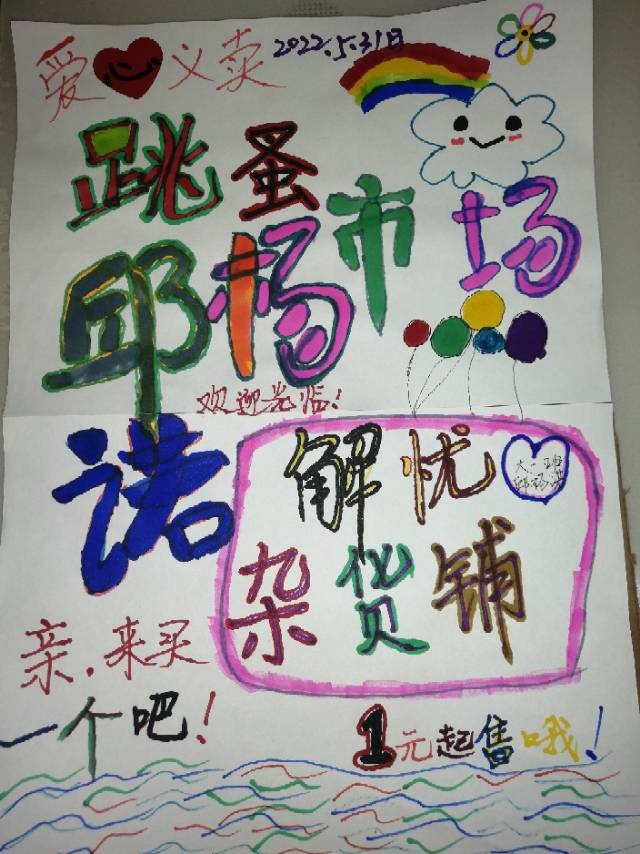 爱心义卖 2022.5.31日
跳蚤市场
邱杨
诺
欢迎光临!
解忧
杂货铺
大二班
邱杨诺
亲,来买
一个吧!
1元起售哦!